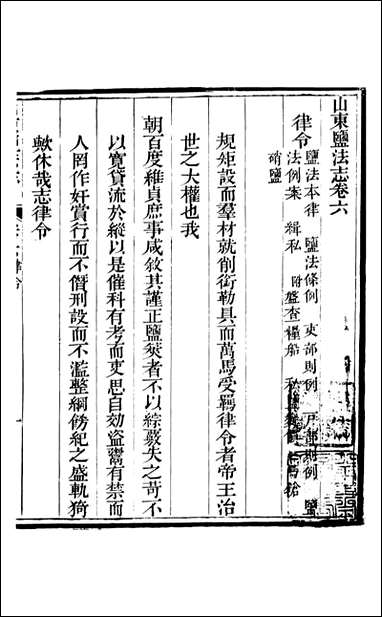 山東鹽法志卷六
律令
鹽法本律 鹽法條例 吏部則例 戶部則例 鹽
法例案 緝私 附盤查糧船 私
硝鹽
規矩設而羣材就削銜勒具而萬馬受羈律令者帝王治
世之大權也我
朝百度維貞庶事咸敘其謹正鹽筴者不以綜覈失之苛不
以寬貸流於縱以是催科有考而吏思自効盜鬻有禁而
人罔作奸賞行而不僭刑設而不濫整綱飭紀之盛軌猗
歟休哉志律令